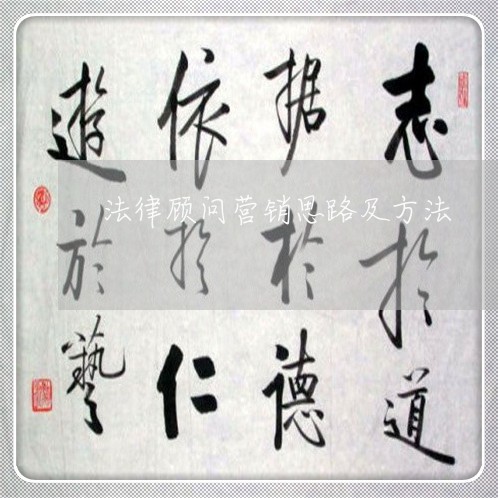 志於道
据於德
依於仁
遊於藝
法律顾问营销思路及方法